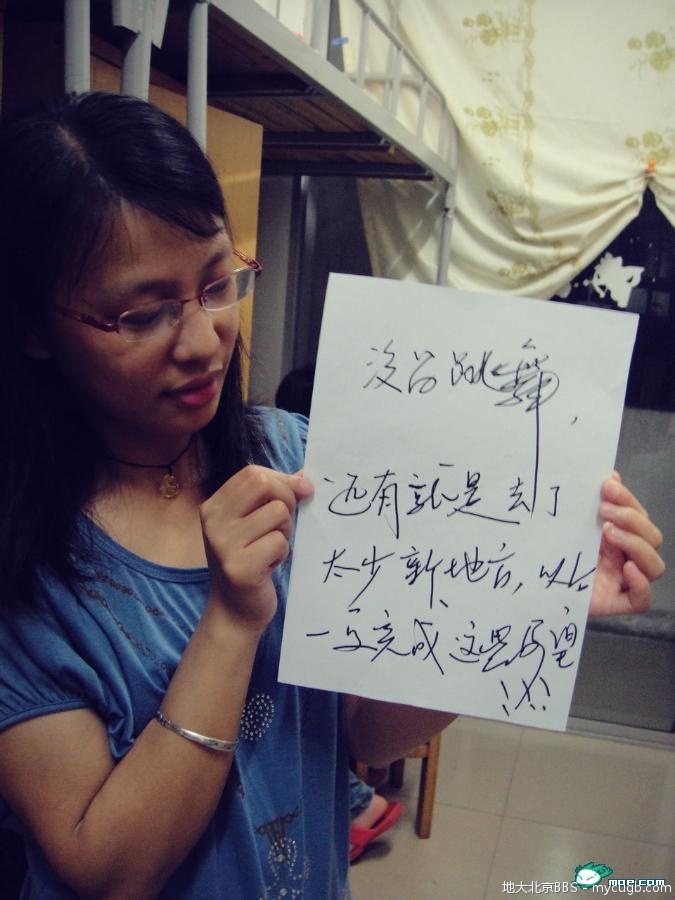 没 跳舞,
还有就是去了
太少新地方,以后
一定完成这 愿望
!!!
mop.com
地大北京BBS - mycugb.com